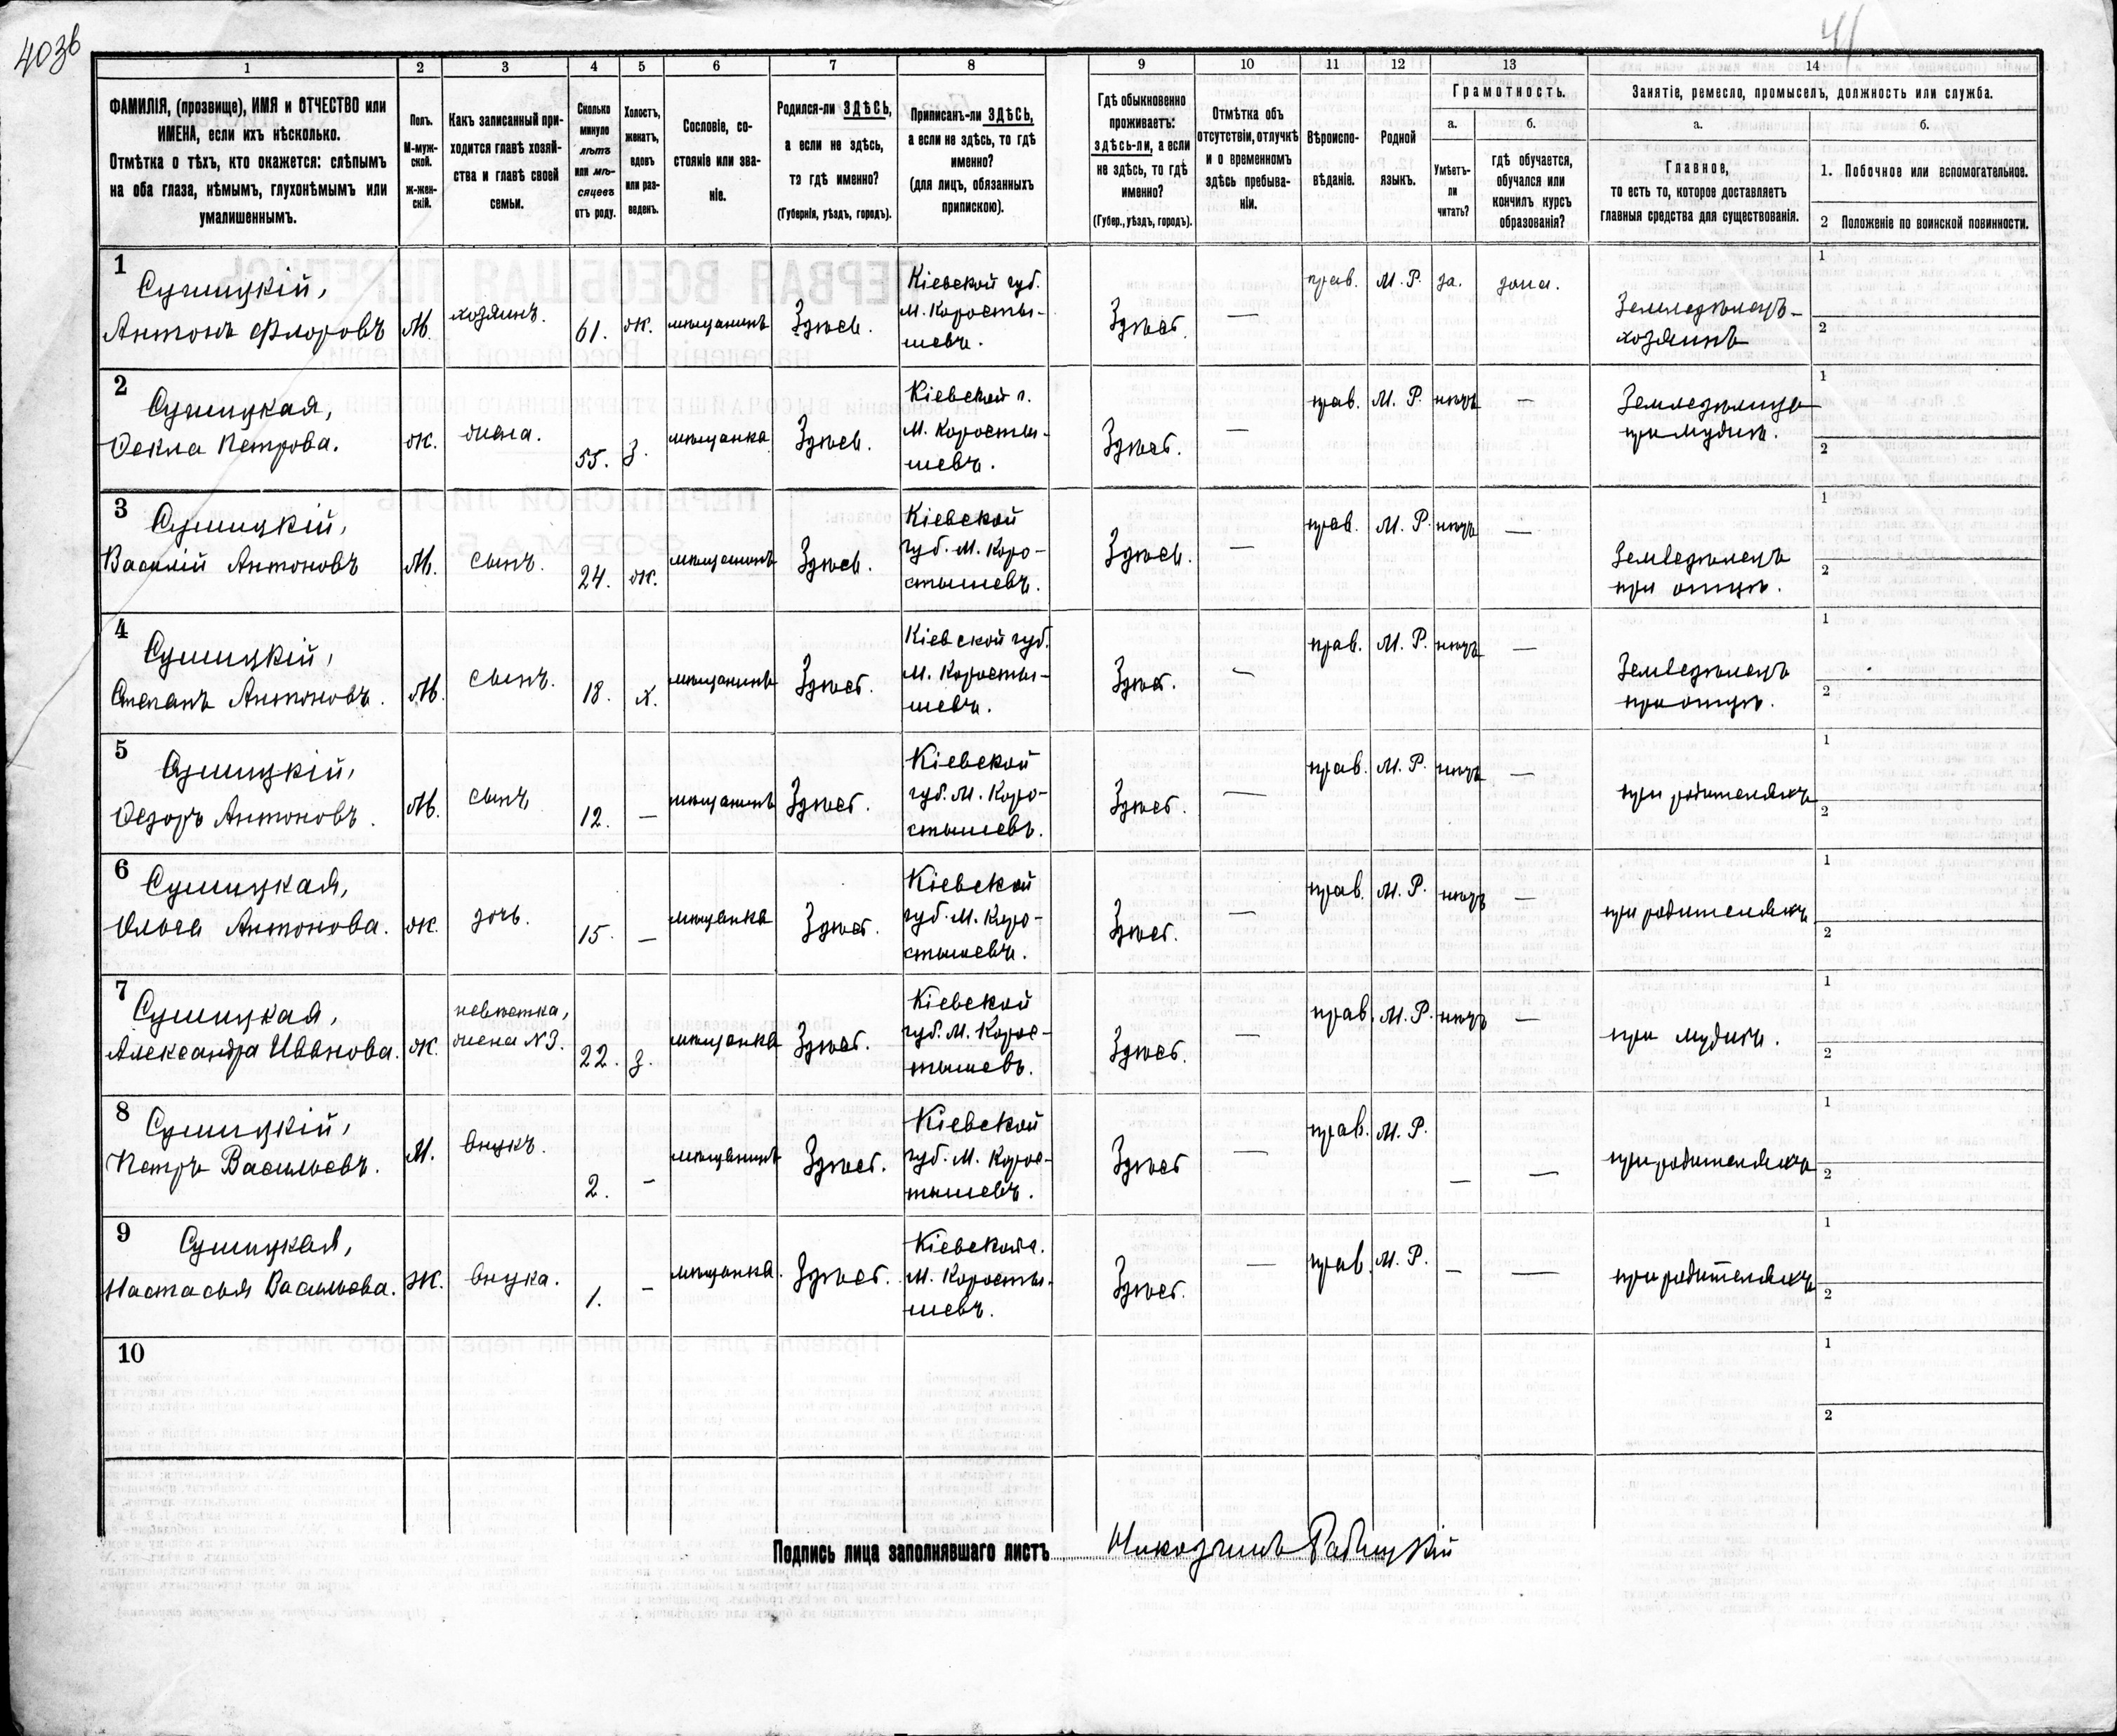 403б
41
1 2 3 4 5 6 7 8 9 10 11 12 13 14
ФАМИЛІЯ, (прозвище), ИМЯ и ОТЧЕСТВО или
ИМЕНА, если ихъ нѣсколько.
Отмѣтка о тѣхъ, кто окажется: слѣпымъ
на оба глаза, нѣмымъ, глухонѣмымъ или
умалишеннымъ.
Полъ.
М-муж-
ской.
ж-жен-
скій.
Какъ записанный при-
ходится главѣ хозяй-
ства и главѣ своей
семьи.
Сколько
минуло
лѣтъ
или мѣ-
сяцевъ
отъ роду.
Холостъ,
женатъ,
вдовъ
или раз-
веденъ.
Сословіе, со-
стояніе или зва-
ніе.
Родился-ли ЗДѢСЬ,
а если не здѣсь,
то гдѣ именно?
(Губернія, уѣздъ, городъ).
Приписанъ-ли ЗДѢСЬ,
а если не здѣсь, то гдѣ
именно?
(для лицъ, обязанныхъ
припискою).
Гдѣ обыкновенно
проживаетъ:
здѣсь-ли, а если
не здѣсь, то гдѣ
именно?
(Губер., уѣздъ, городъ).
Отмѣтка объ
отсутствіи, отлучкѣ
и о временномъ
здѣсь пребыва-
ніи.
Вѣроиспо-
вѣданіе.
Родной
языкъ.
Грамотность.
а.
Умѣетъ-
ли
читать?
б.
гдѣ обучается,
обучался или
кончилъ курсъ
образованія?
Занятіе, ремесло, промыселъ, должность или служба.
а.
Главное,
то есть то, которое доставляетъ
главныя средства для существованія.
б.
1. Побочное или вспомогательное.
2 Положеніе по воинской повинности.
1
Сушицкій,
Антонъ Флоровъ
М.
хозяинъ.
61.
ж.
мѣщанинъ
Здѣсь.
Кіевской губ.
М. Коросты-
шевъ.
Здѣсь
—
прав.
М. Р.
да.
дома.
Земледѣлецъ-
хозяинъ
1
2
2
Сушицкая,
Ѳекла Петрова.
ж.
жена.
55.
з.
мѣщанка
Здѣсь.
Кіевской г.
М. Коросты-
шевъ.
Здѣсь.
—
прав.
М. Р.
нѣтъ
—
Земледѣлица
при мужѣ.
1
2
3
Сушицкій,
Василій Антоновъ
М.
сынъ.
24.
ж.
мѣщанинъ
Здѣсь.
Кіевской
губ. М. Коро-
стышевъ.
Здѣсь.
—
прав.
М. Р.
нѣтъ
—
Земледѣлецъ
при отцѣ.
1
2
4
Сушицкій,
Степанъ Антоновъ.
М.
сынъ.
18.
х.
мѣщанинъ
Здѣсь.
Кіевской губ.
М. Коросты-
шевъ.
Здѣсь.
—
прав.
М. Р.
нѣтъ
—
Земледѣлецъ
при отцѣ.
1
2
5
Сушицкій,
Ѳедоръ Антоновъ.
М.
сынъ
12.
—
мѣщанинъ
Здѣсь.
Кіевской
губ. М. Коро-
стышевъ.
Здѣсь.
—
прав.
М. Р.
нѣтъ
—
при родителяхъ
1
2
6
Сушицкая,
Ольга Антонова.
ж.
дочь.
15.
—
мѣщанка
Здѣсь.
Кіевской
губ. М. Коро-
стышевъ.
Здѣсь.
—
прав.
М. Р.
нѣтъ
—
при родителяхъ
1
2
7
Сушицкая,
Александра Иванова.
ж.
невѣстка,
жена N3.
22.
з.
мѣщанка
Здѣсь.
Кіевской
губ. М. Корос-
тышевъ.
Здѣсь.
—
прав.
М. Р.
нѣтъ
—
при мужѣ.
1
2
8
Сушицкій,
Петръ Васильевъ.
М.
внукъ.
2.
-
мѣщанинъ
Здѣсь.
Кіевской
губ. М. Корос-
тышевъ.
Здѣсь
—
прав.
М. Р.
—
—
при родителяхъ
1
2
9
Сушицкая,
Настасья Васильева.
Ж.
внука.
1.
-
мѣщанка.
Здѣсь.
Кіевской г.
М. Коросты-
шевъ.
Здѣсь.
—
прав.
М. Р.
—
—
при родителяхъ
1
2
10
1
2
Подпись лица заполнявшаго листъ Никодимъ Рабицкій